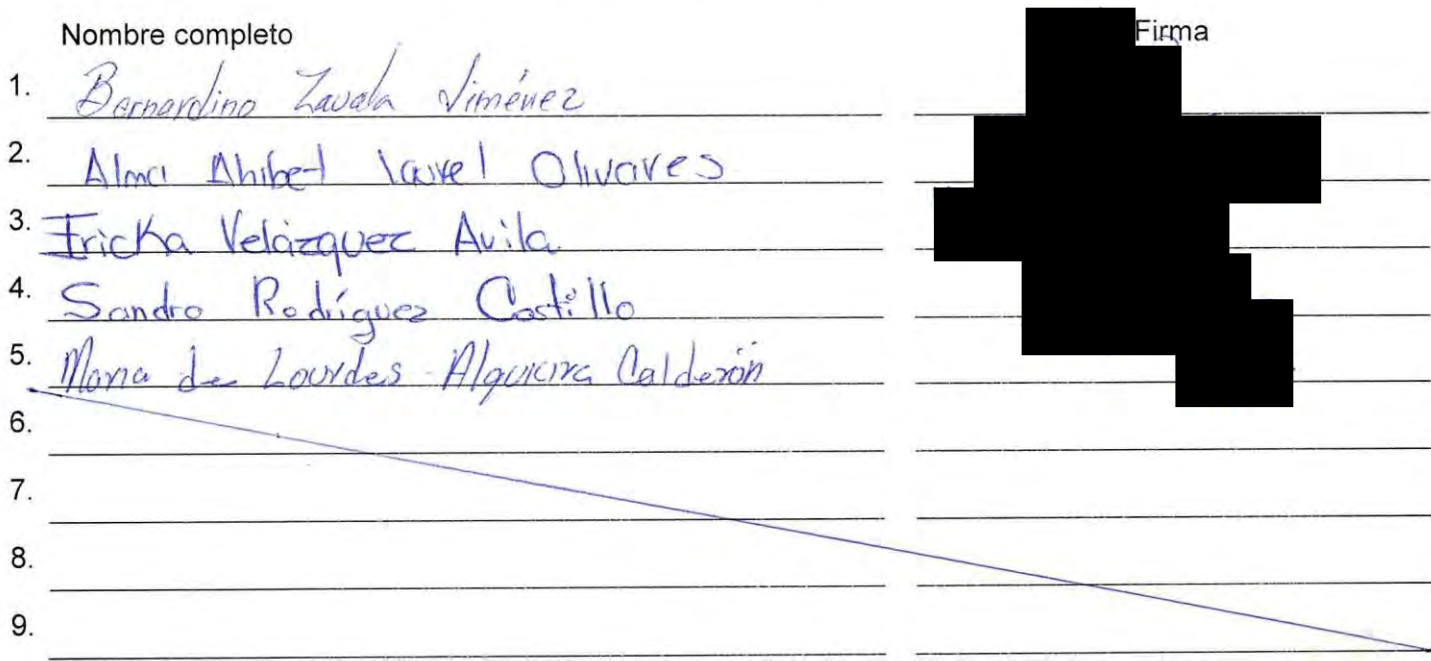 Nombre completo Firma
1. Bernardino Zavala Jiménez
2. Alma Ahibet laurel Olivares
3. Ericka Velázquez Avila
4. Sandra Rodríguez Castillo
5. Maria de Lourdes Alquicira Calderón
6.
7.
8.
9.